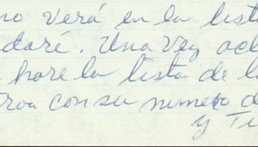 no verá en la list
daré. Una vez acl
hare la lista de l
con su numero d
y Ti